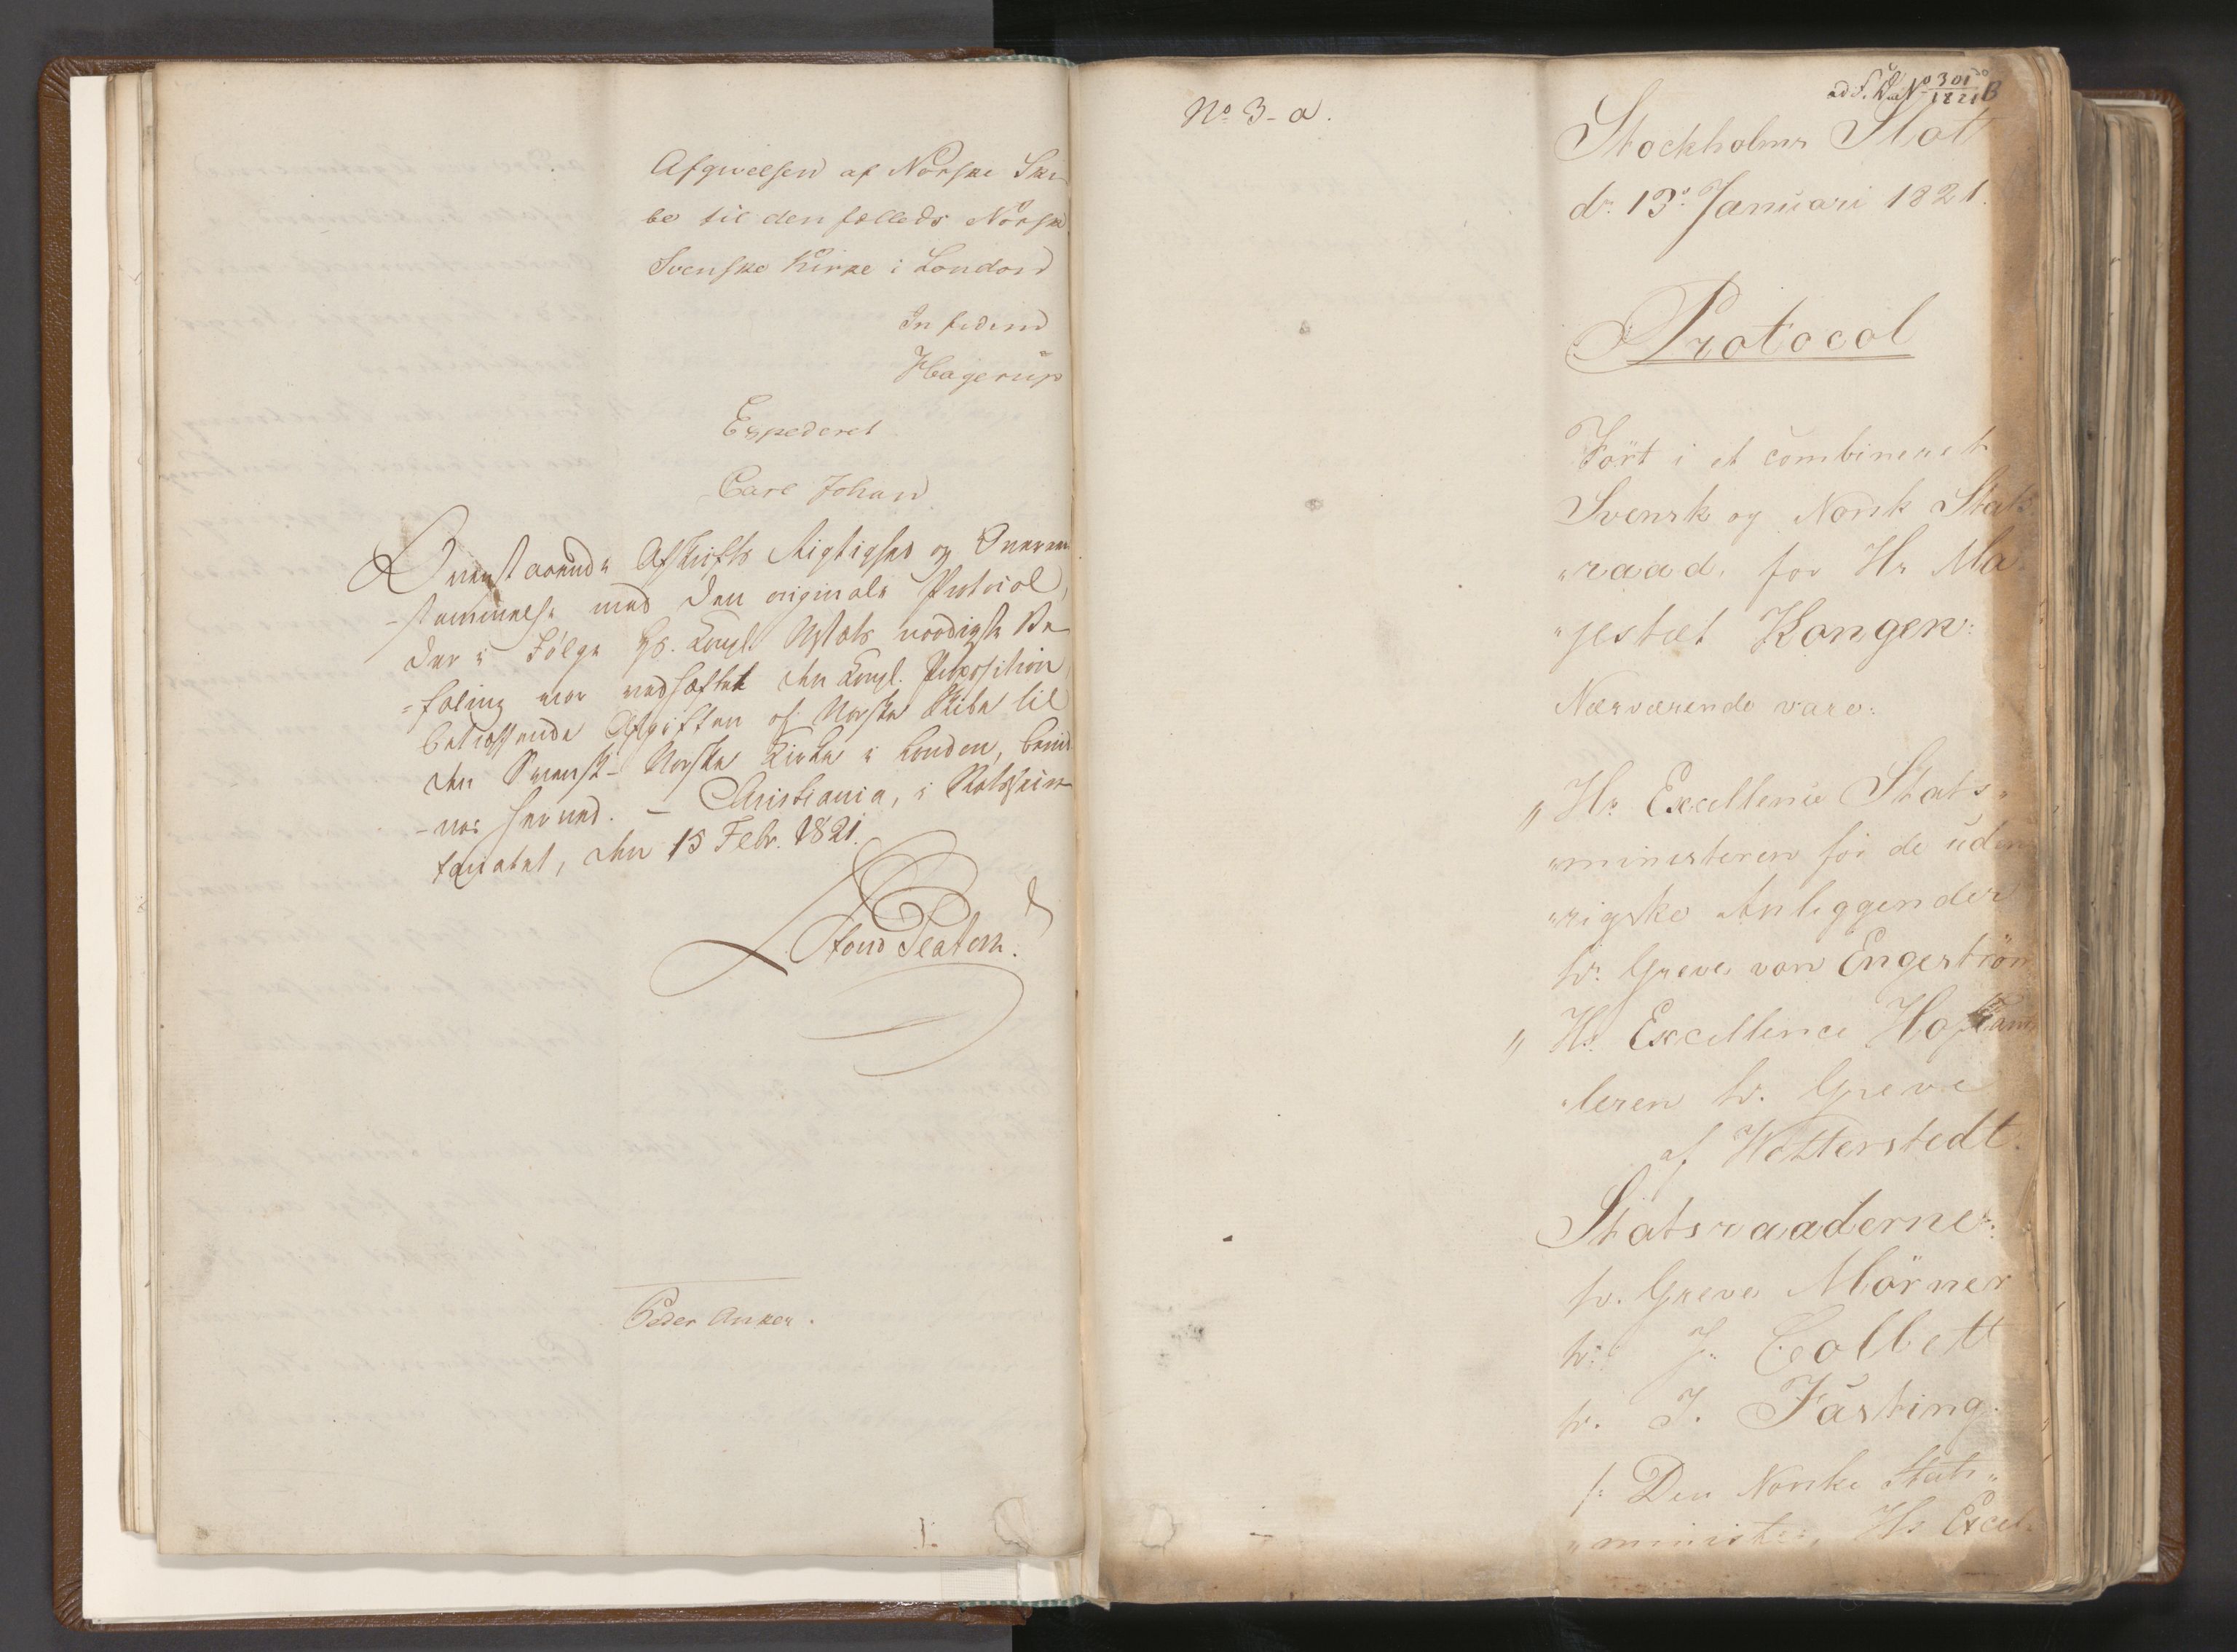 Afgivelsen af Norske Ski-
be til den fælleds Norske
Svenske Kirke i London
In fidem
Hagerup
Expederet
Carl Johan
Ovenstaaende Afskrifts Rigtighed og Overeen-
-stemmelse med den originale Protocol,
der i Følge Hs. Kongl. Mjsts naadigste Be-
=faling var vedhæftet den Kongl. Proposition
betræffende Afgiften af Norske Skibe til
den Svensk-Norske Kirke i London, bevid-
-nes herved. - Christiania, i Statssecre-
tariatet, den 15 Febr. 1821.
Peder Anker.
No 3-a.
301
1821 B
Stockholms Slott
d. 13. Januari 1821.
Protocol
Fört i et combineret
Svensk og Norsk Stats-
"raad, for Hs Ma-
"jestæt Kongen.
Nærværende vare:
" Hs Excellence Stats-
"ministeren för de uden-
"rigske Anliggender
hr. Greve von Engeström
" Hs. Excellence Hofkants-
"leren hr. Greve
af Wetterstedt.
Statsraaderne:
hr. Greve Mörner
hr. J. Collett
hr. J. Fasting
/: Den Norske Stats-
"minister, Hs Excel-